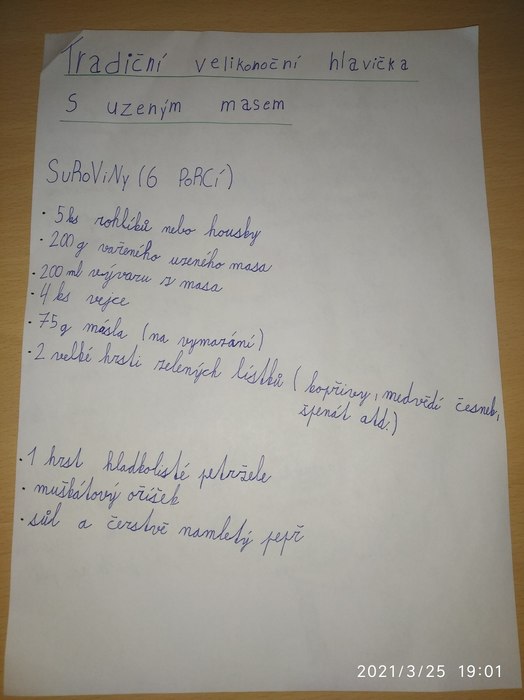 Tradiční velikonoční hlavička
S uzeným masem
SuRoViNy (6 PoRCí)
• 5ks rohlíků nebo housky
• 200g vařeného uzeného masa
• 200 ml vývaru z masa
• 4 ks vejce
• 75g másla (na vymazání)
• 2 velké hrsti zelených lístků (kopřivy, medvědí česnek,
špenát atd.)
• 1 hrst hladkolisté petržele
• muškátový oříšek
• sůl a čerstvě namletý pepř
2021/3/25 19:01